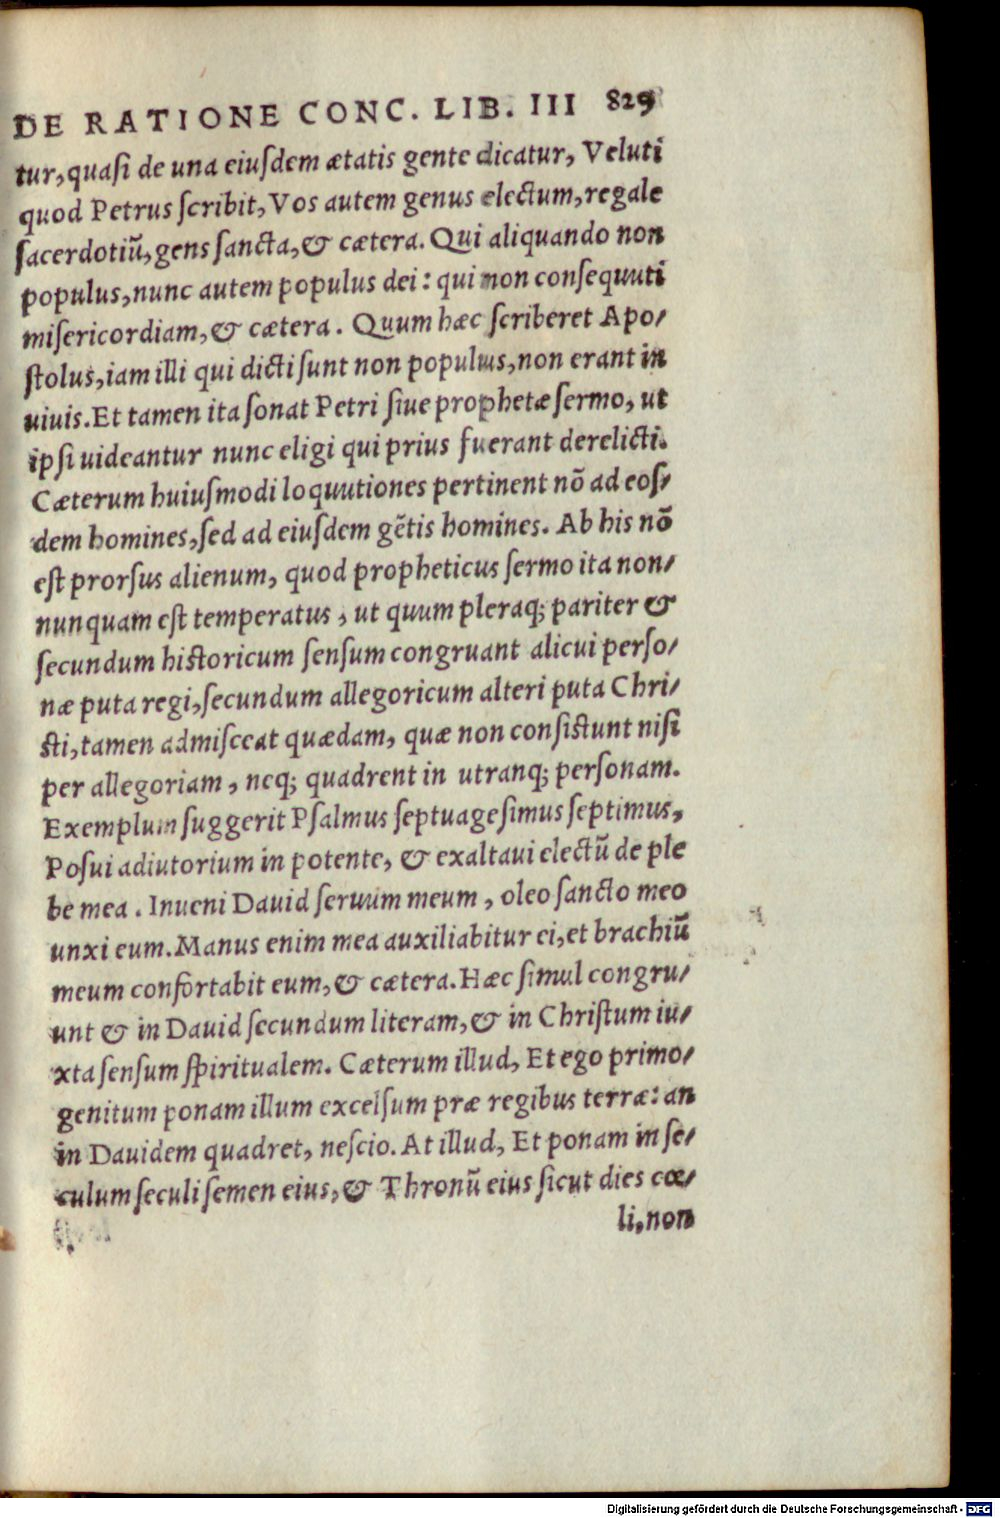 DE RATIONE CONC. LIB. III 829
tur, quaſi de una eiuſdem ætatis gente dicatur, Veluti
quod Petrus ſcribit, Vos autem genus electum, regale
ſacerdotiũ, gens ſancta, & cætera. Qui aliquando non
populus, nunc autem populus dei: qui non conſequuti
miſericordiam, & cætera. Quum hæc ſcriberet Apo/
ſtolus, iam illi qui dicti ſunt non populus, non erant in
uiuis. Et tamen ita ſonat Petri ſiue prophetæ ſermo, ut
ipſi uideantur nunc eligi qui prius fuerant derelicti.
Cæterum huiuſmodi loquutiones pertinent nõ ad eoſ/
dem homines, ſed ad eiuſdem gẽtis homines. Ab his nõ
eſt prorſus alienum, quod propheticus ſermo ita non/
nunquam eſt temperatus, ut quum pleraq; pariter &
ſecundum hiſtoricum ſenſum congruant alicui perſo/
næ puta regi, ſecundum allegoricum alteri puta Chri/
ſti, tamen admiſceat quædam, quæ non conſiſtunt niſi
per allegoriam, neq; quadrent in utranq; perſonam.
Exemplum ſuggerit Pſalmus ſeptuageſimus ſeptimus,
Poſui adiutorium in potente, & exaltaui electũ de ple
be mea. Inueni Dauid ſeruum meum, oleo ſancto meo
unxi eum. Manus enim mea auxiliabitur ei, et brachiũ
meum confortabit eum, & cætera. Hæc ſimul congru/
unt & in Dauid ſecundum literam, & in Chriſtum iu/
xta ſenſum ſpiritualem. Cæterum illud, Et ego primo/
genitum ponam illum excelſum præ regibus terræ: an
in Dauidem quadret, neſcio. At illud, Et ponam in ſe/
culum ſeculi ſemen eius, & Thronũ eius ſicut dies cœ/
li, non
Digitalisierung gefördert durch die Deutsche Forschungsgemeinschaft - DFG